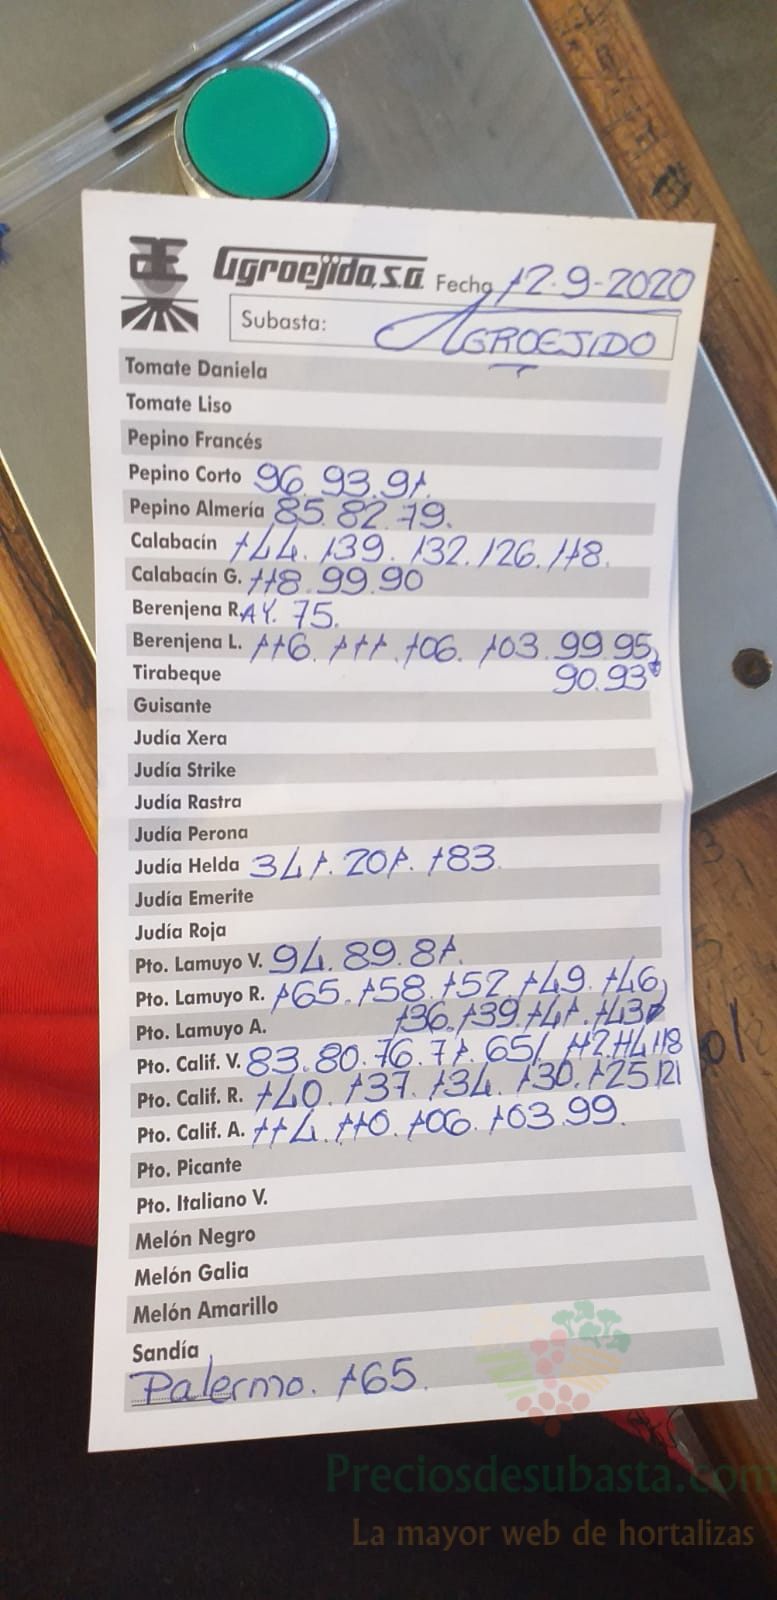 Agroejido, S.A. Fecha 12-9-2020
Subasta: AGROEJIDO
Tomate Daniela
Tomate Liso
Pepino Francés
Pepino Corto 96. 93. 91.
Pepino Almería 85. 82. 79.
Calabacín 144. 139. 132. 126. 118.
Calabacín G. 118. 99. 90
Berenjena R. AY. 75.
Berenjena L. 116. 111. 106. 103. 99. 95
Tirabeque 90. 93
Guisante
Judía Xera
Judía Strike
Judía Rastra
Judía Perona
Judía Helda 341. 201. 183
Judía Emerite
Judía Roja
Pto. Lamuyo V. 94. 89. 81.
Pto. Lamuyo R. 165. 158. 152. 149. 146
Pto. Lamuyo A. 136. 139. 141. 143
Pto. Calif. V. 83. 80. 76. 71. 65/ 112. 114 118
Pto. Calif. R. 140. 137. 134. 130. 125 121
Pto. Calif. A. 114. 110. 106. 103. 99.
Pto. Picante
Pto. Italiano V.
Melón Negro
Melón Galia
Melón Amarillo
Sandía
Palermo. 165.
Preciosdesubasta.com
La mayor web de hortalizas